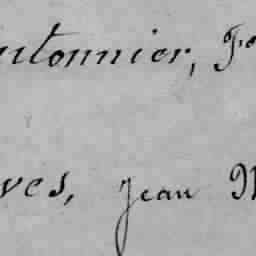 utonnier, Fo
ves, Jean M